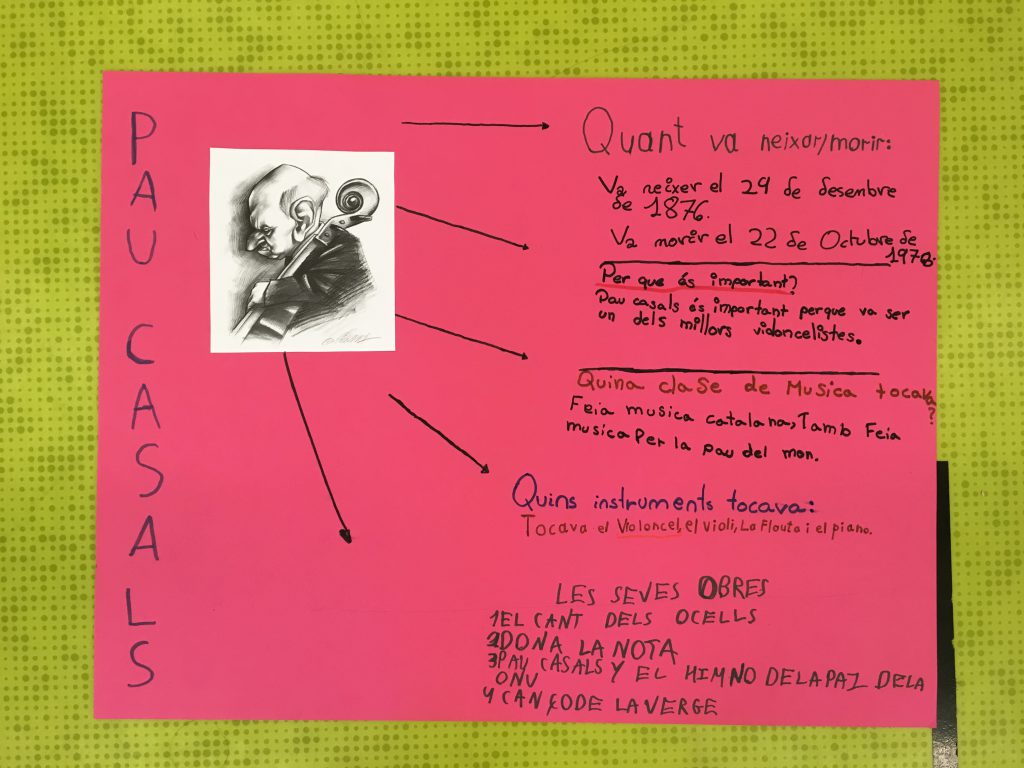 PAU CASALS
Quant va neixar/morir:
Va neixer el 29 de desembre
de 1876.
Va morir el 22 de Octubre de
1973.
Per que és important?
Pau casals és important perque va ser
un dels millors violoncelistes.
Quina clase de Musica tocava?
Feia musica catalana, Tamb Feia
musica Per la pau del mon.
Quins instruments tocava:
Tocava el Violoncel, el violi, La Flauta i el piano.
LES SEVES OBRES
1EL CANT DELS OCELLS
2DONA LA NOTA
3PAU CASALS Y EL HIMNO DELAPAZ DELA
ONU
4 CANÇODE LAVERGE